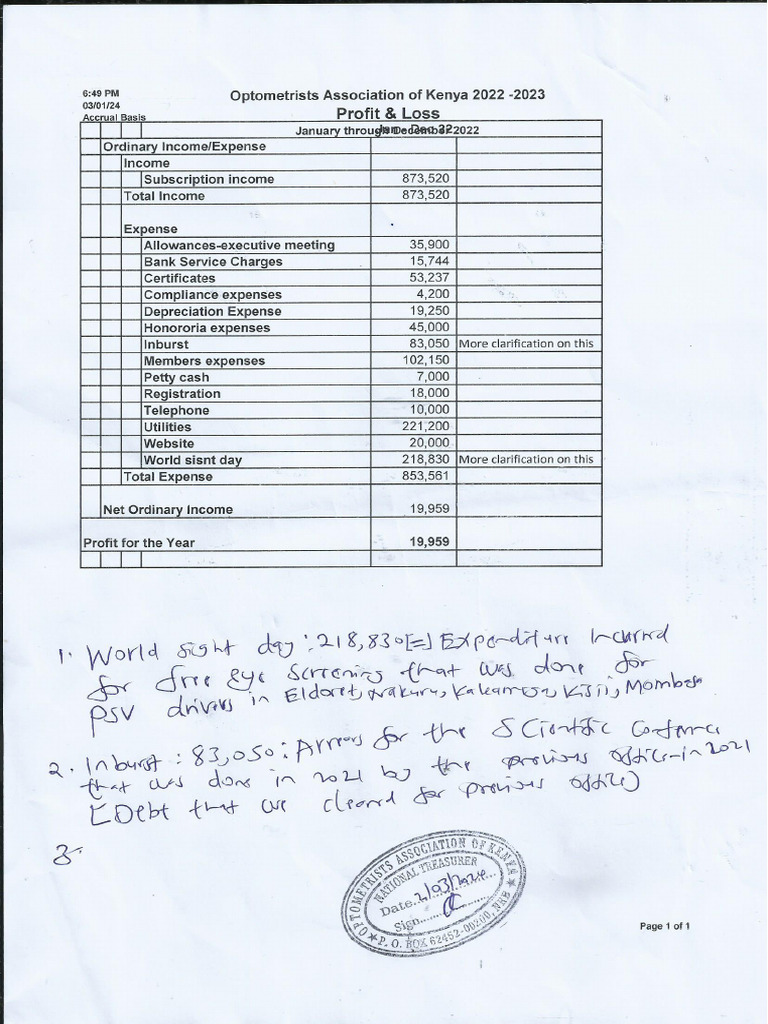 6:49 PM
03/01/24
Accrual Basis
Optometrists Association of Kenya 2022 -2023
Profit & Loss
January through December 2022
Jan - Dec 22
Ordinary Income/Expense
Income
Subscription income 873,520
Total Income 873,520
Expense
Allowances-executive meeting 35,900
Bank Service Charges 15,744
Certificates 53,237
Compliance expenses 4,200
Depreciation Expense 19,250
Honororia expenses 45,000
Inburst 83,050 More clarification on this
Members expenses 102,150
Petty cash 7,000
Registration 18,000
Telephone 10,000
Utilities 221,200
Website 20,000
World sisnt day 218,830 More clarification on this
Total Expense 853,561
Net Ordinary Income 19,959
Profit for the Year 19,959
1. World sight day: 218,830[=] Expenditure Incurred
for free eye screening that was done for
PSV drivers in Eldoret, Nakuru, Kakamega, Kisii, Mombasa
2. Inburst: 83,050: Arrears for the Scientific Conference
that was done in 2021 by the previous office in 2021
[Debt that we cleared for previous office)
3.
OPTOMETRISTS ASSOCIATION OF KENYA
NATIONAL TREASURER
Date 2/03/2024
Sign
P. O. BOX 62452-00200, NRB
Page 1 of 1